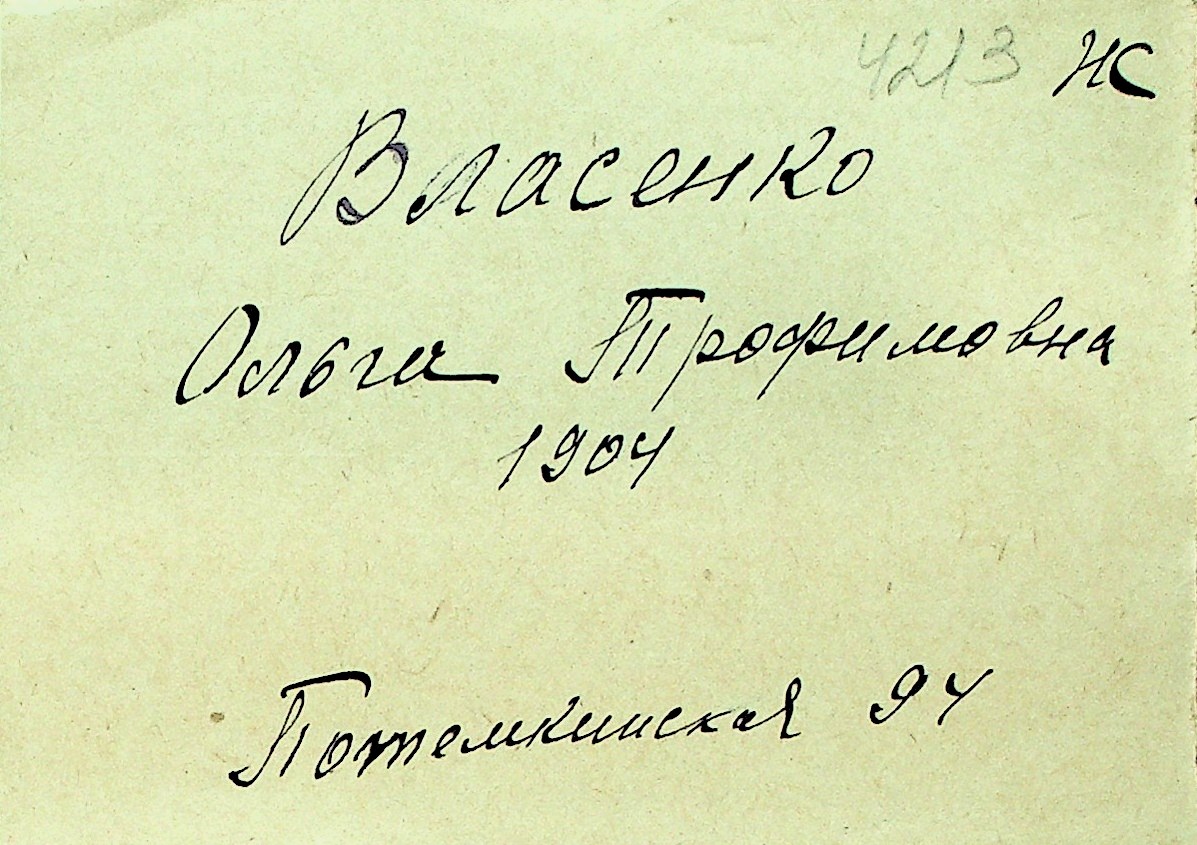 4213 НС
Власенко
Ольга Трофимовна
1904
Потемкинская 94